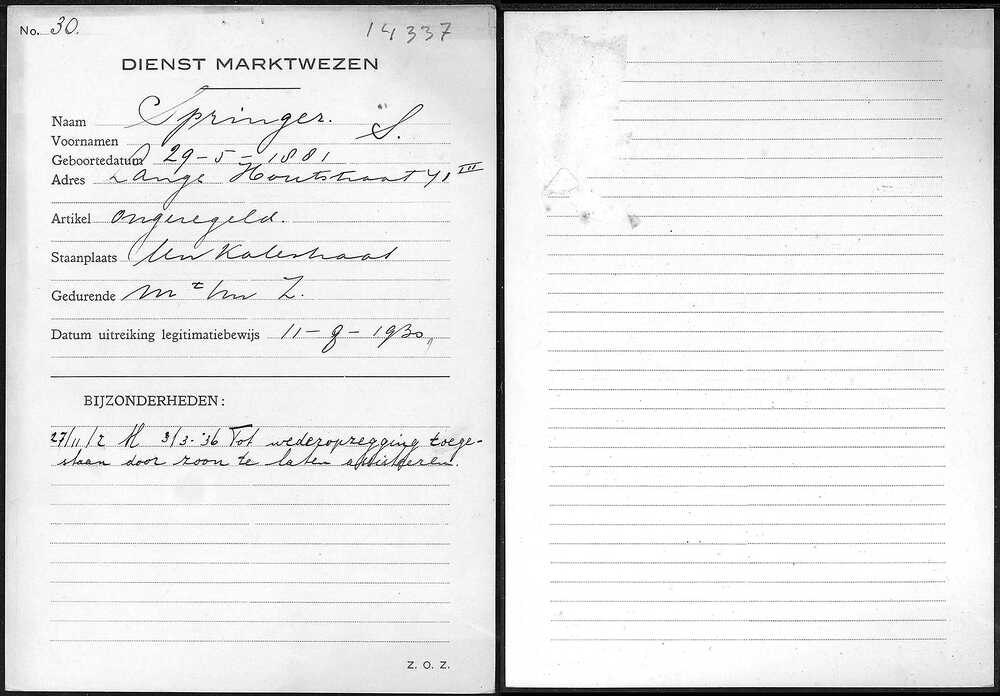 No. 30. 14337
DIENST MARKTWEZEN
Naam Springer.
Voornamen S.
Geboortedatum 29-5-1881
Adres Lange Houtstraat 41 III
Artikel Ongeregeld.
Staanplaats
Gedurende m t/m Z.
Datum uitreiking legitimatiebewijs 11-8-1930
BIJZONDERHEDEN:
27/11/2 M 3/3-'36 Tot wederopzegging toege-
staan door zoon te laten assisteren.
Z. O. Z.